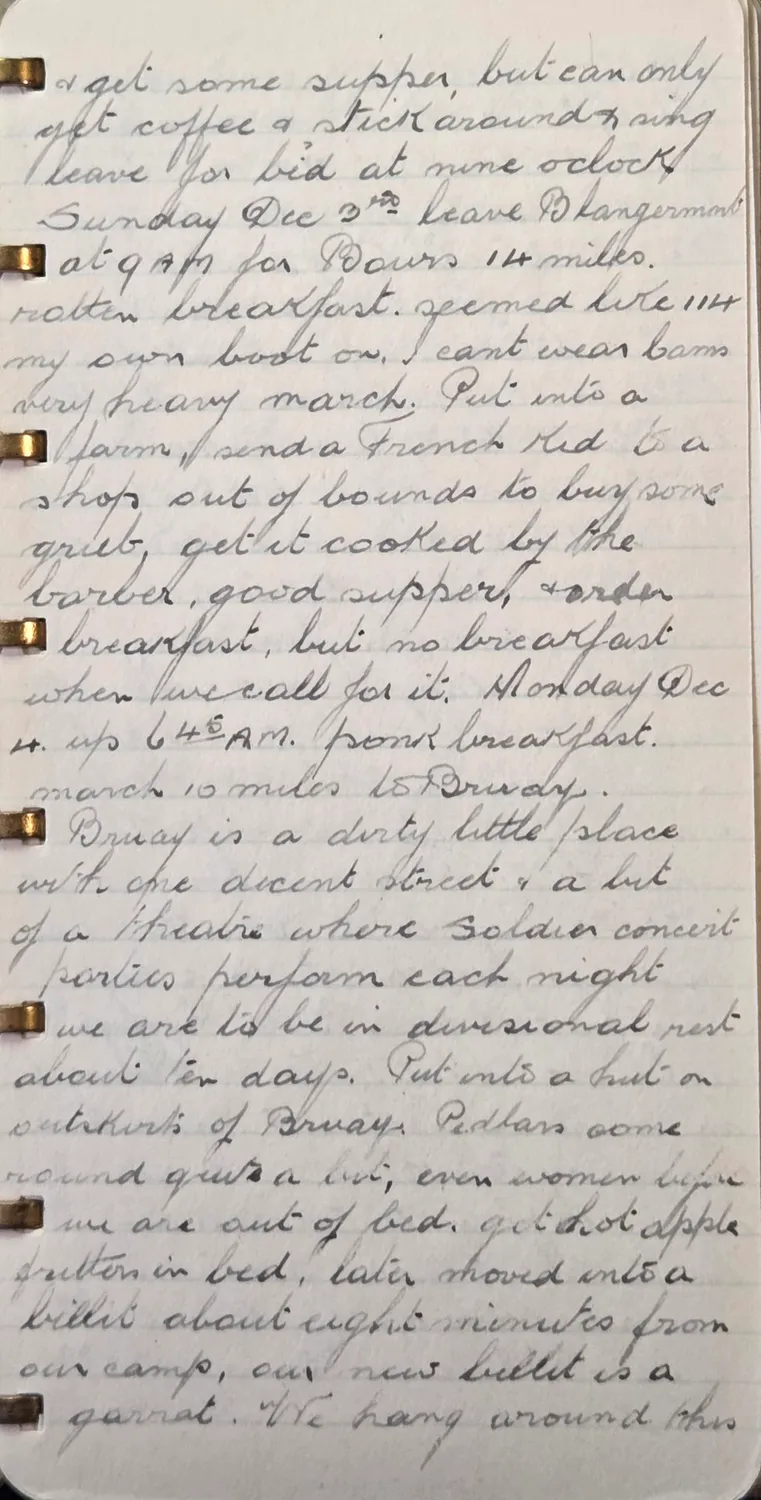 & get some supper, but can only
get coffee & stick around & sing
leave for bed at nine oclock
Sunday Dec 3rd leave Blangermont
at 9 AM for Bours 14 miles.
rotten breakfast. seemed like 114
my own boot on. I cant wear bams
very heavy march. Put into a
farm, send a French kid to a
shop out of bounds to buy some
grub, get it cooked by the
barber, good supper, & order
breakfast, but no breakfast
when we call for it. Monday Dec
4. up 6 45 AM. ponk breakfast.
march 10 miles to Bruay.
Bruay is a dirty little place
with one decent street & a bit
of a theatre where soldier concert
parties perform each night
we are to be in divisional rest
about ten days. Put into a hut on
outskirts of Bruay. Pedlars come
round quite a bit, even women before
we are out of bed. get hot apple
fritters in bed, later moved into a
billit about eight minutes from
our camp, our new billit is a
garrat. We hang around this